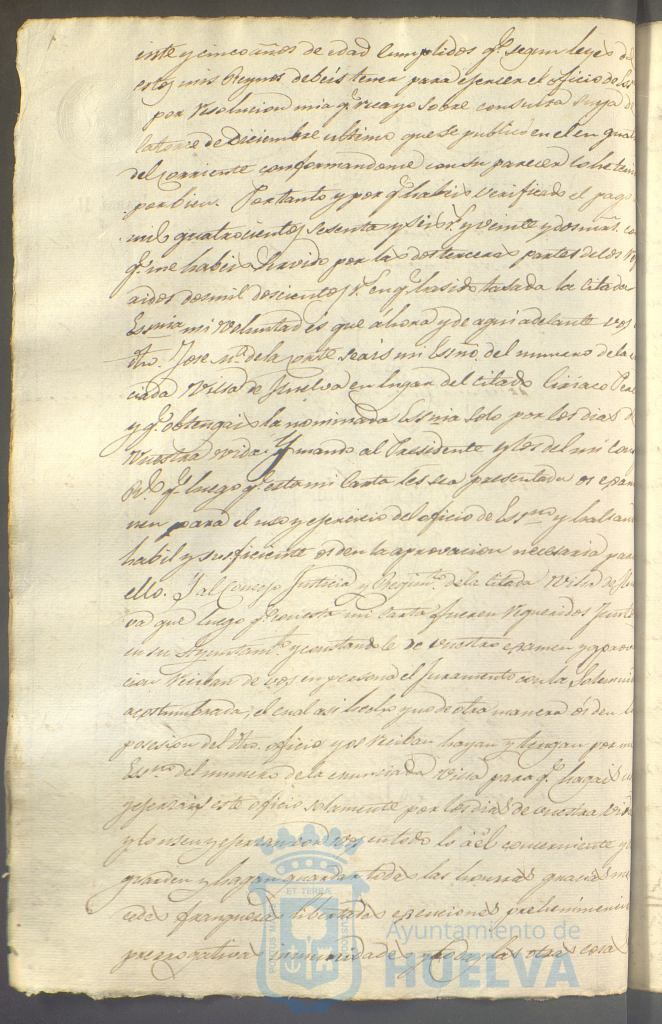 inte y cinco años de edad cumplidos q.e segun leyes de
estos mis Reynos debeis tener para ejercer el oficio de Es
por resolucion mia q.e recayo sobre consulta suya de
catorce de Diciembre ultimo que se publicó en el en qua
del corriente conformandome con su parecer lo he teni
por bien. Por tanto y por q.e habeis verificado el pago
mil quatrocientos sesenta y seis r.s y veinte y dos mrs.
q.e me habeis servido por las dos terceras partes de los
dos mil doscientos r.s en q.e ha sido tasada la citada
Esnia mi voluntad es que ahora y de aqui adelante vos
dho. Jose M.a de la Corte seais mi Esno. del numero de la
ciada Villa de Huelva en lugar del citado Ciriaco Pere
y q.e obtengais la nominada Esnia solo por los dias de
vuestra vida. Y mando al Presidente y los del mi Con
R.l q.e luego q.e esta mi Carta les sea presentada os exa
nen para el uso y ejercicio del oficio de Essno y hallan
habil y suficiente os den la aprovacion necesaria para
ello. Y al Concejo Justicia y Regim.to de la citada Villa de Huel
va que luego q.e con esta mi Carta fueren requeridos juntos
en su Ayuntam.to y constandole de vuestro examen y aprova
cion reciban de vos en persona el juramento con la solemni
acostumbrada, el cual asi hecho y no de otra manera os den la
posesion del dho. oficio y os reciban hayan y tengan por mi
Es.no del numero de la enunciada Villa para q.e hagais
y ejerzais este oficio solamente por los dias de vuestra vida
y lo usen y ejerzan con vos en todo lo á él concerniente y
guarden y hagan guardar todas las honras gracias mer
cedes franquezas libertades exenciones preheminencias
prerrogativas inmunidades y todas las otras cosas
ET TERRÆ
PORTUS MARIS
CUSTODIA
Ayuntamiento de
HUELVA